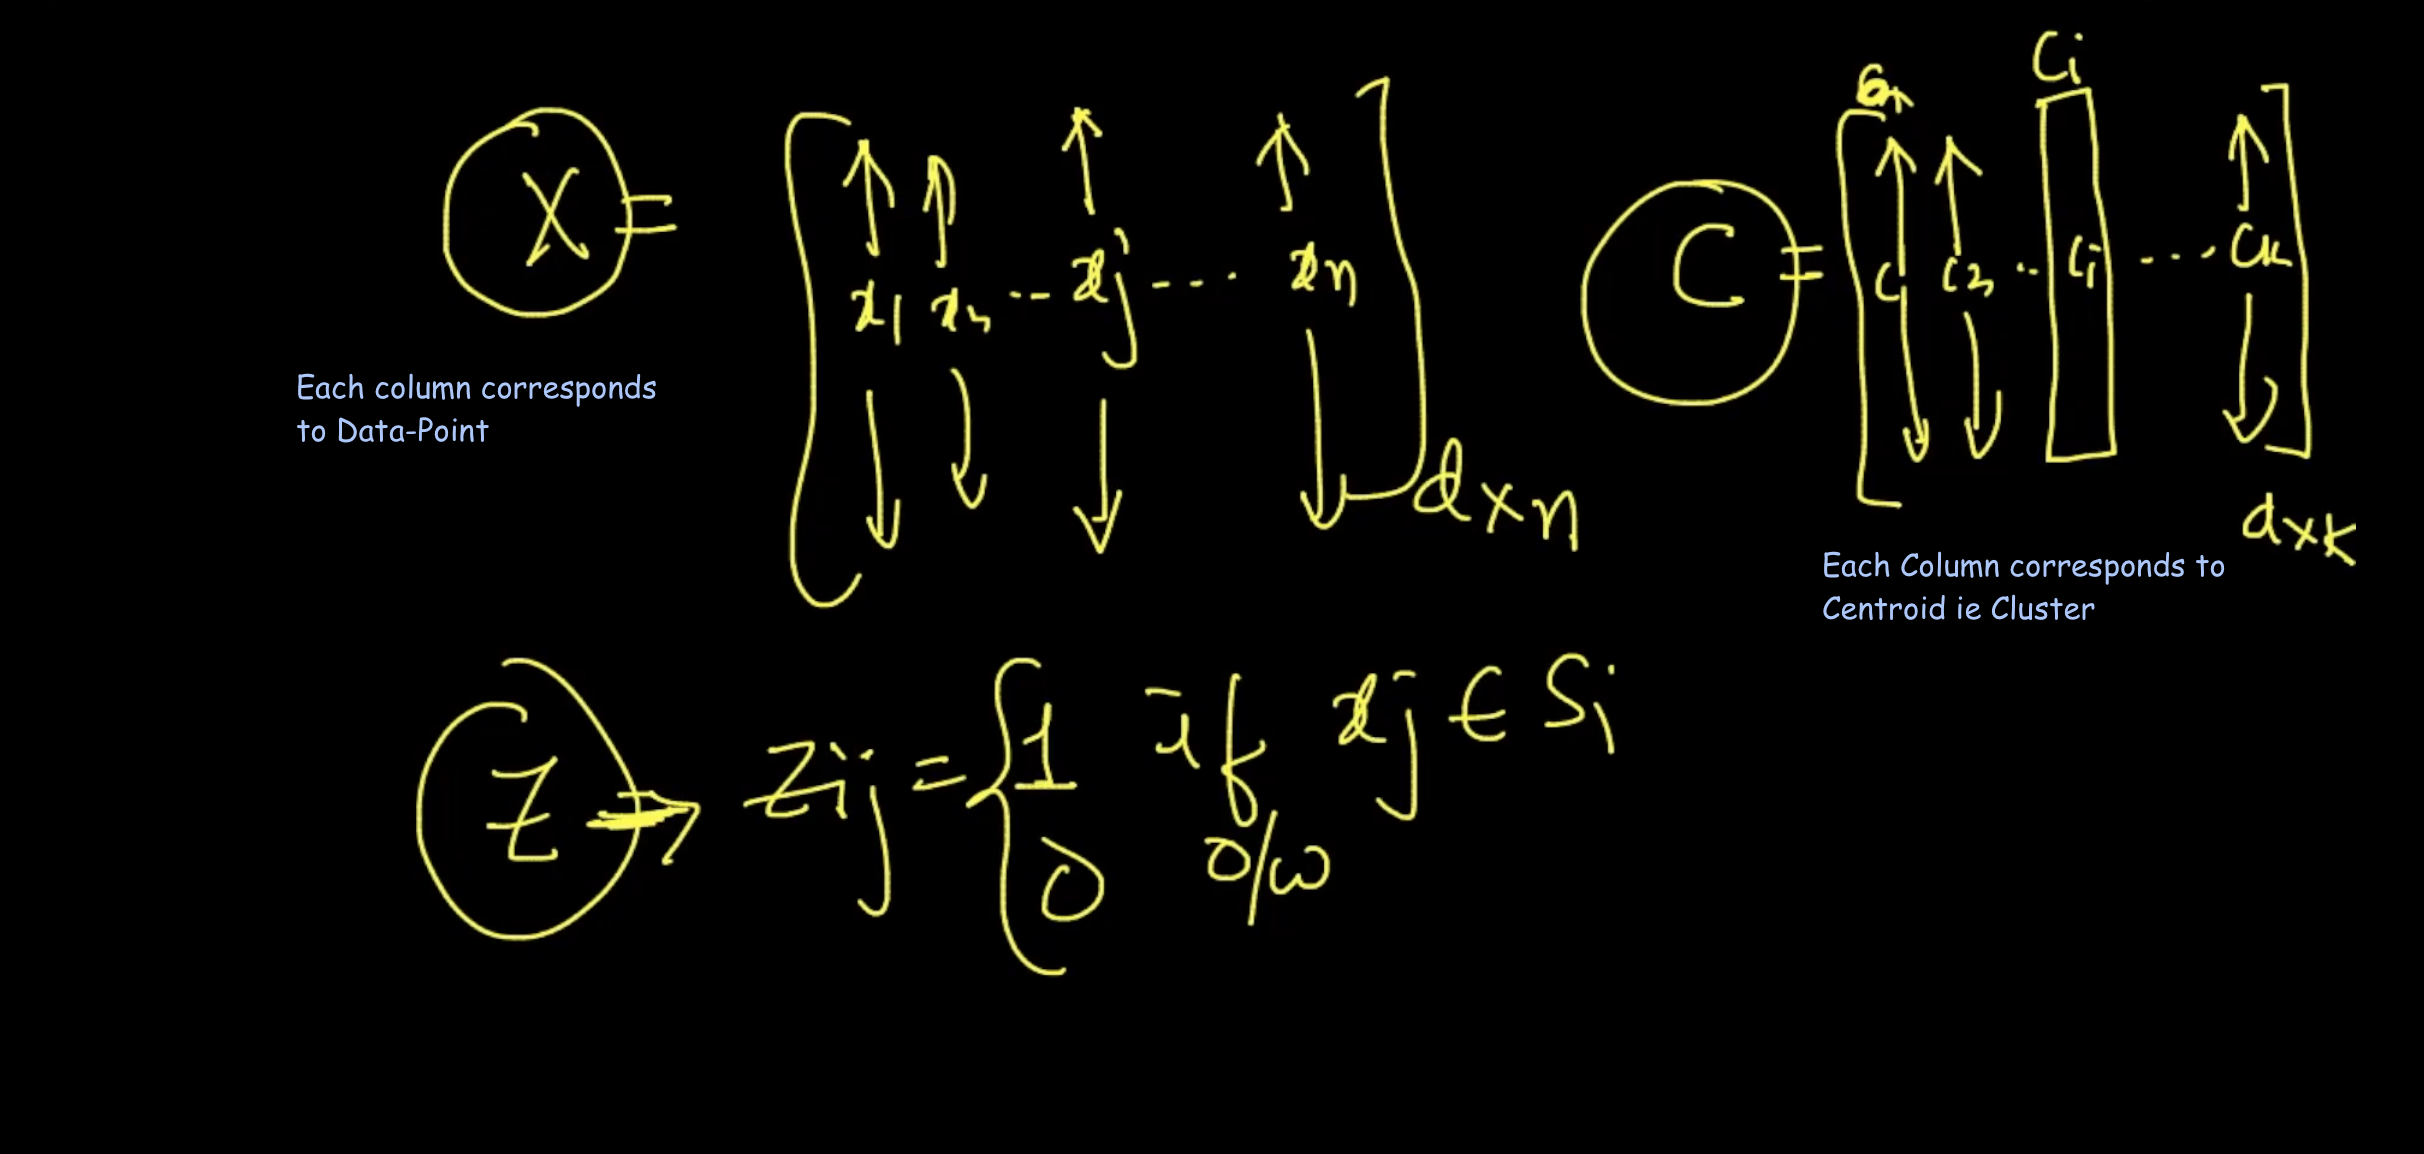 X = [ x1 x2 ... xj .... xn ] d×n
Each column corresponds
to Data-Point
Ci
C = [ C1 C2 .. Ci .... Ck ] d×k
Each Column corresponds to
Centroid ie Cluster
Z → Zij = { 1 if xj ∈ Si
0 o/w